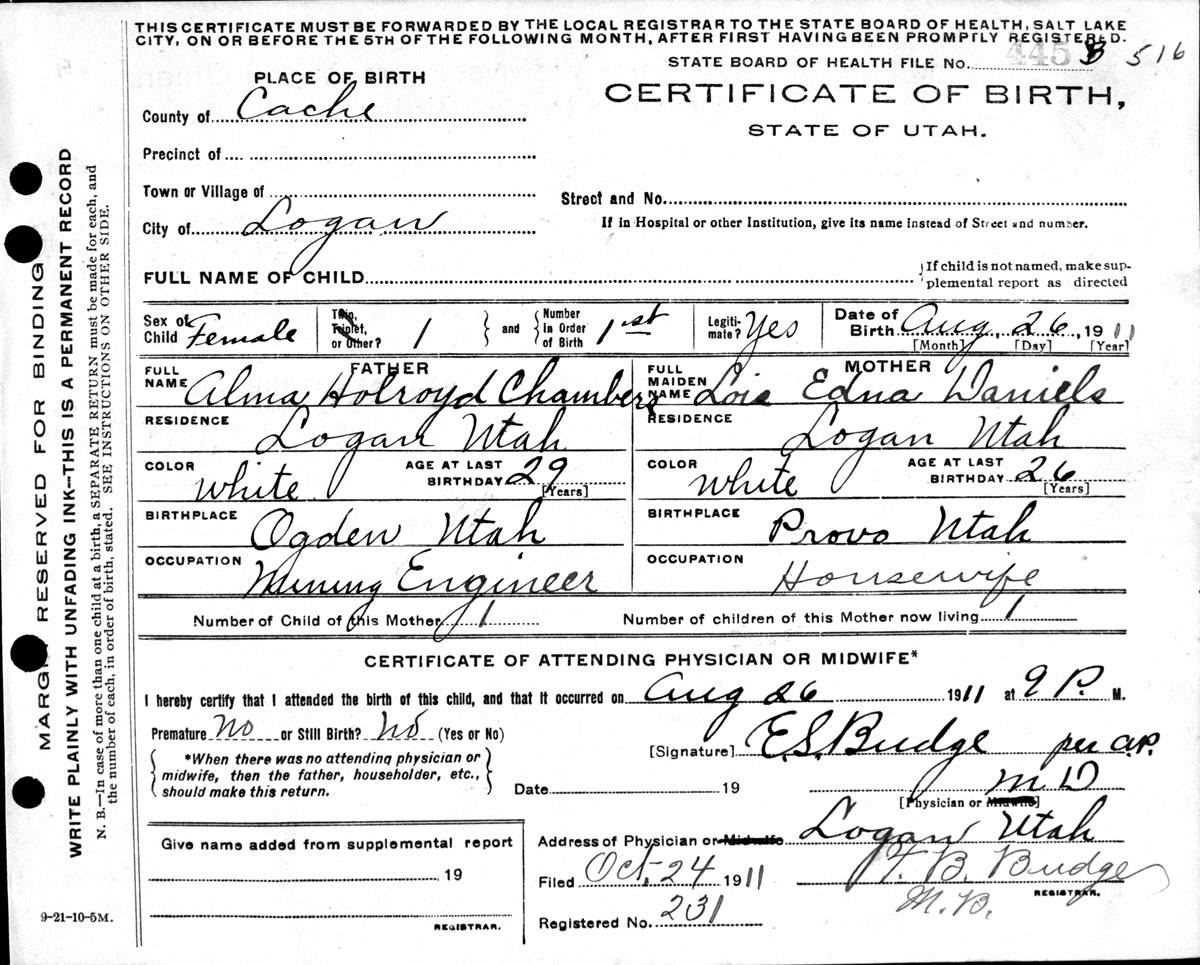 THIS CERTIFICATE MUST BE FORWARDED BY THE LOCAL REGISTRAR TO THE STATE BOARD OF HEALTH, SALT LAKE
CITY, ON OR BEFORE THE 5TH OF THE FOLLOWING MONTH, AFTER FIRST HAVING BEEN PROMPTLY REGISTERED.
STATE BOARD OF HEALTH FILE No. 445 B 516
PLACE OF BIRTH
CERTIFICATE OF BIRTH,
STATE OF UTAH.
County of Cache
Precinct of
Town or Village of
Street and No.
City of Logan
If in Hospital or other Institution, give its name instead of Street and number.
FULL NAME OF CHILD
If child is not named, make sup-
plemental report as directed
Sex of Child Female
Twin, Triplet, or Other? 1 and Number in Order of Birth 1st
Legiti-mate? Yes
Date of Birth Aug, 26, 1911
[Month] [Day] [Year]
FATHER
FULL NAME Alma Holroyd Chambers
MOTHER
FULL MAIDEN NAME Lois Edna Daniels
RESIDENCE Logan Utah
RESIDENCE Logan Utah
COLOR White AGE AT LAST BIRTHDAY 29 [Years]
COLOR White AGE AT LAST BIRTHDAY 26 [Years]
BIRTHPLACE Ogden Utah
BIRTHPLACE Provo Utah
OCCUPATION Mining Engineer
OCCUPATION Housewife
Number of Child of this Mother 1
Number of children of this Mother now living 1
CERTIFICATE OF ATTENDING PHYSICIAN OR MIDWIFE*
I hereby certify that I attended the birth of this child, and that it occurred on Aug 26 1911 at 9 P. M.
Premature No or Still Birth? No (Yes or No)
*When there was no attending physician or
midwife, then the father, householder, etc.,
should make this return.
[Signature] E.S. Budge per
Date 19 M D
[Physician or Midwife]
Address of Physician or Midwife Logan Utah
Give name added from supplemental report
19
REGISTRAR.
Filed Oct, 24 1911 B. Budge
REGISTRAR.
Registered No. 231
9-21-10-5M.
MARGIN RESERVED FOR BINDING
WRITE PLAINLY WITH UNFADING INK--THIS IS A PERMANENT RECORD
N. B.—In case of more than one child at a birth, a SEPARATE RETURN must be made for each, and
the number of each, in order of birth, stated. SEE INSTRUCTIONS ON OTHER SIDE.